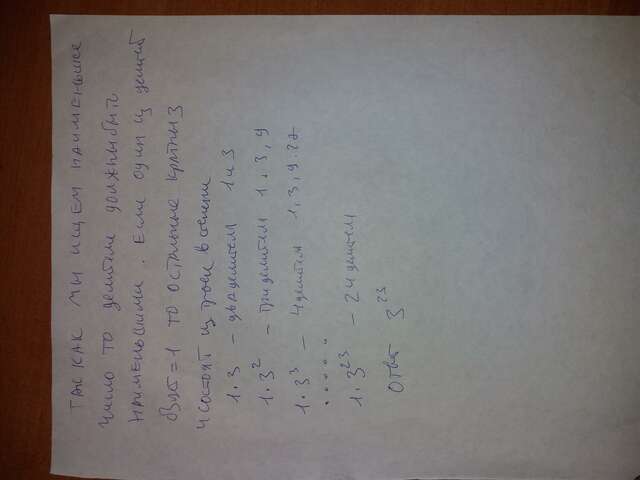 ТАК КАК МЫ ИЩЕМ НАИМЕНЬШЕЕ
число то делители должны быть
наименьшими. Если один из делит
взят = 1 то остальные кратны 3
и состоят из тройки в степени
1·3 – два делителя 1 и 3
1·3² – три делителя 1·3,9
1·3³ – 4 делителя 1,3,9·27
......
1·3²³ – 24 делителя
Ответ 3²³